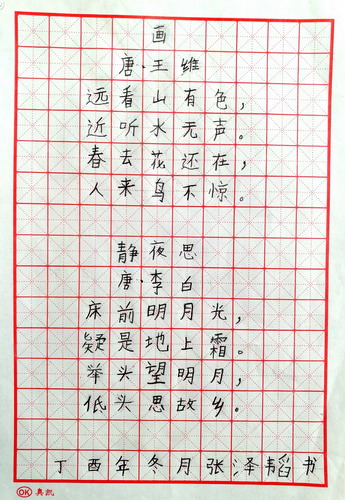 画
唐·王维
远看山有色，
近听水无声。
春去花还在，
人来鸟不惊。
静夜思
唐·李白
床前明月光，
疑是地上霜。
举头望明月，
低头思故乡。
丁酉年冬月张泽韬书
OK 奥凯